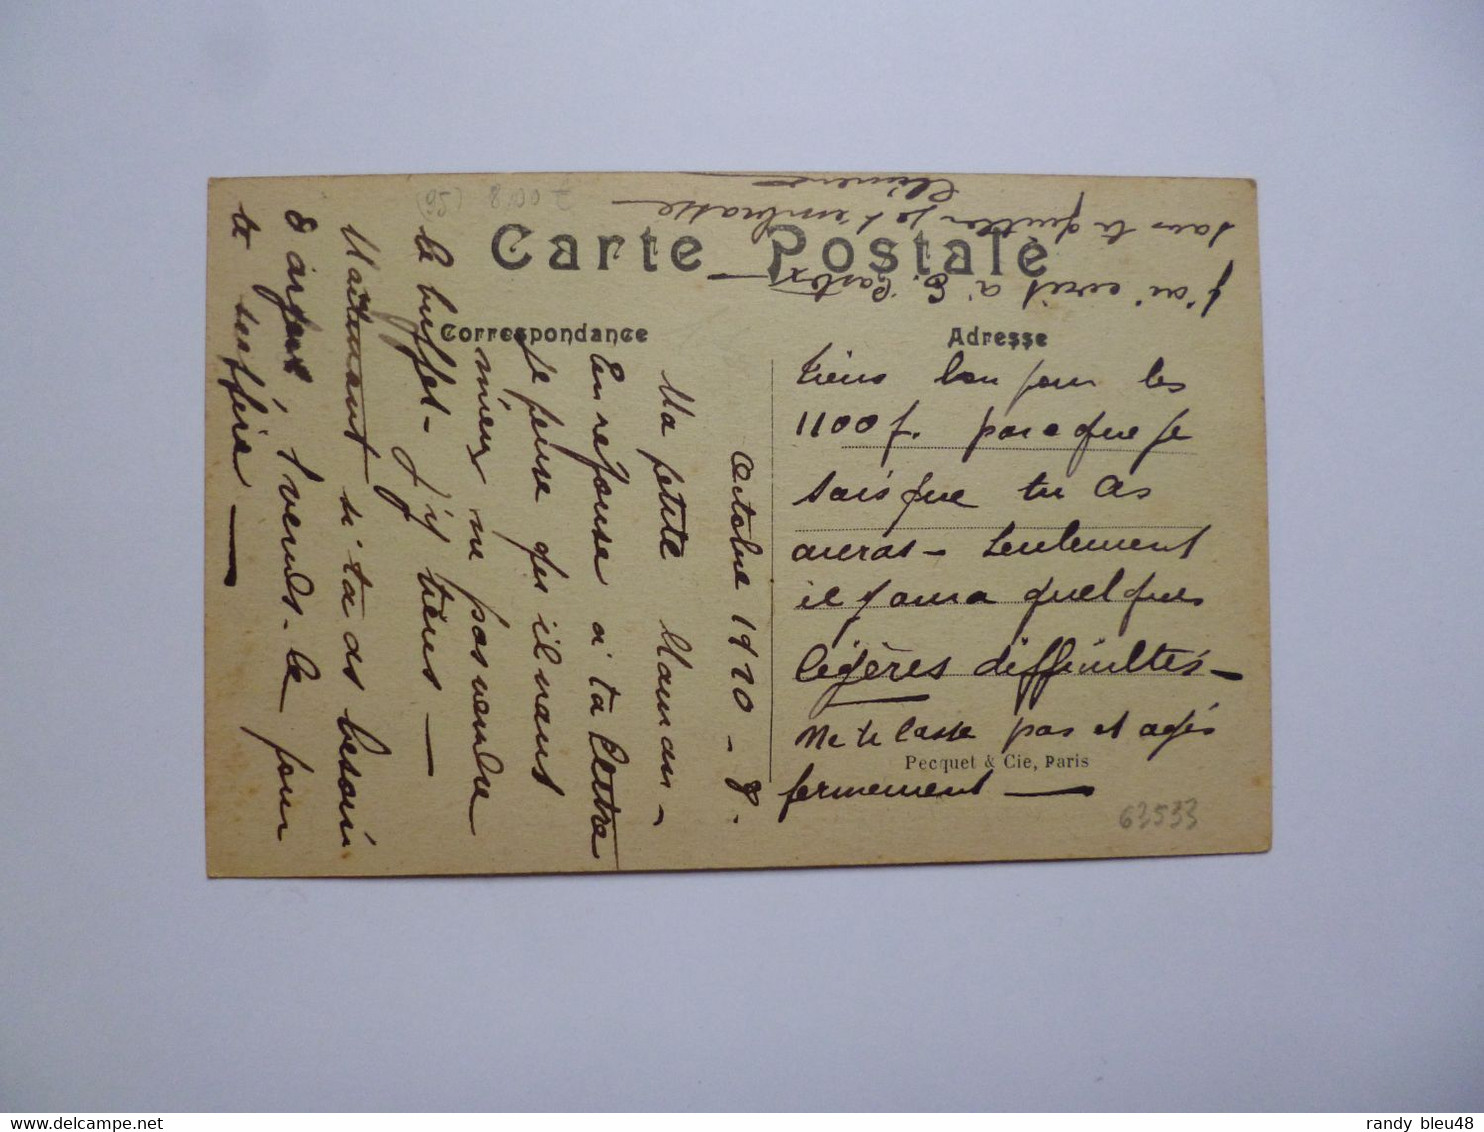 Carte Postale
Correspondance
Adresse
Octobre 1920 - 8.
Ma petite Maman -
En réponse à ta lettre
Je pense qu'il vaut
mieux ne pas vendre
le buffet - J'y tiens -
Maintenant si t'as as besoin
d'argent, vends-le pour
te
tiens bon pour les
1100 f. parceque je
sais que tu as
auras - Seulement
il y aura quelques
légères difficultés -
Ne te lasse pas et agis
fermement
j'ai écrit à E.
sans te quitter je t'embrasse
Pecquet & Cie, Paris
63533
delcampe.net
randy_bleu48